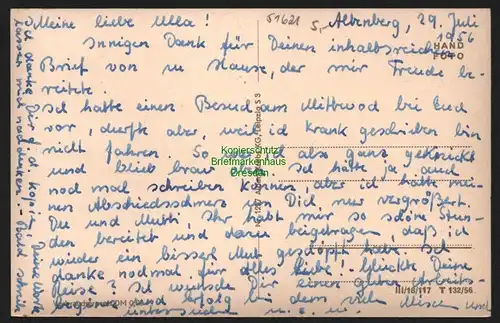 Altenberg, 29. Juli 1956
51621
5,-
HAND
FOTO
Meine liebe Ulla!
Innigen Dank für Deinen inhaltsreichen
Brief von zu Hause, der mir Freude be-
reitete.
Ich hatte einen Besuch am Mittwoch bei Euch
vor, durfte aber, weil ich krank geschrieben bin
nicht fahren. So war ich also ganz geknickt
und blieb brav Ich hätte ja auch
noch mal schreiben können, aber ich hatte mei-
nen Abschiedsschmerz von Dir, nur vergrößert.
Du und Mutti, Ihr habt mir so schöne Stun-
den bereitet und dazu beigetragen, daß ich
wieder ein bisserl Mut geschöpft habe. Ich
danke nochmal für alles liebe! Glückte Deine
Reise? Ich wünsche Dir einen guten Arbeits-
und Erfolg bei dem
Ich danke Dir f. d. Deine Worte
lassen mich nachdenken. - Bald
Briefmarkenhaus
Dresden
III/18/117 T 132/56